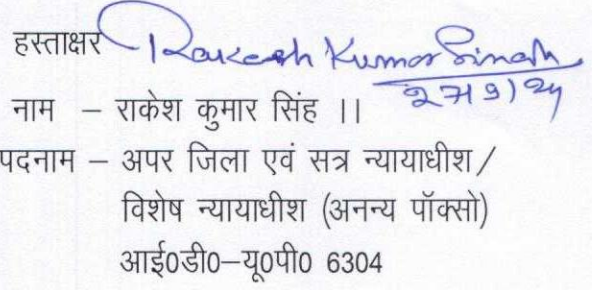 हस्ताक्षर Rakesh Kumar Singh
नाम – राकेश कुमार सिंह ।।
पदनाम – अपर जिला एवं सत्र न्यायाधीश /
विशेष न्यायाधीश (अनन्य पॉक्सो)
आई0डी0–यू0पी0 6304